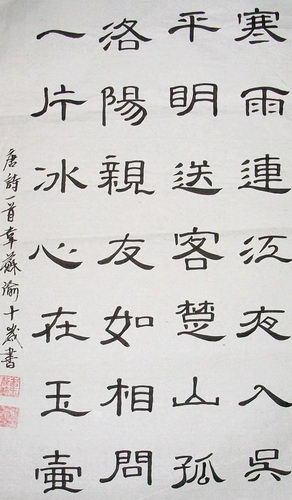 寒雨連江夜入吳
平明送客楚山孤
洛陽親友如相問
一片冰心在玉壺
唐詩一首韋蘇瑜十歲書